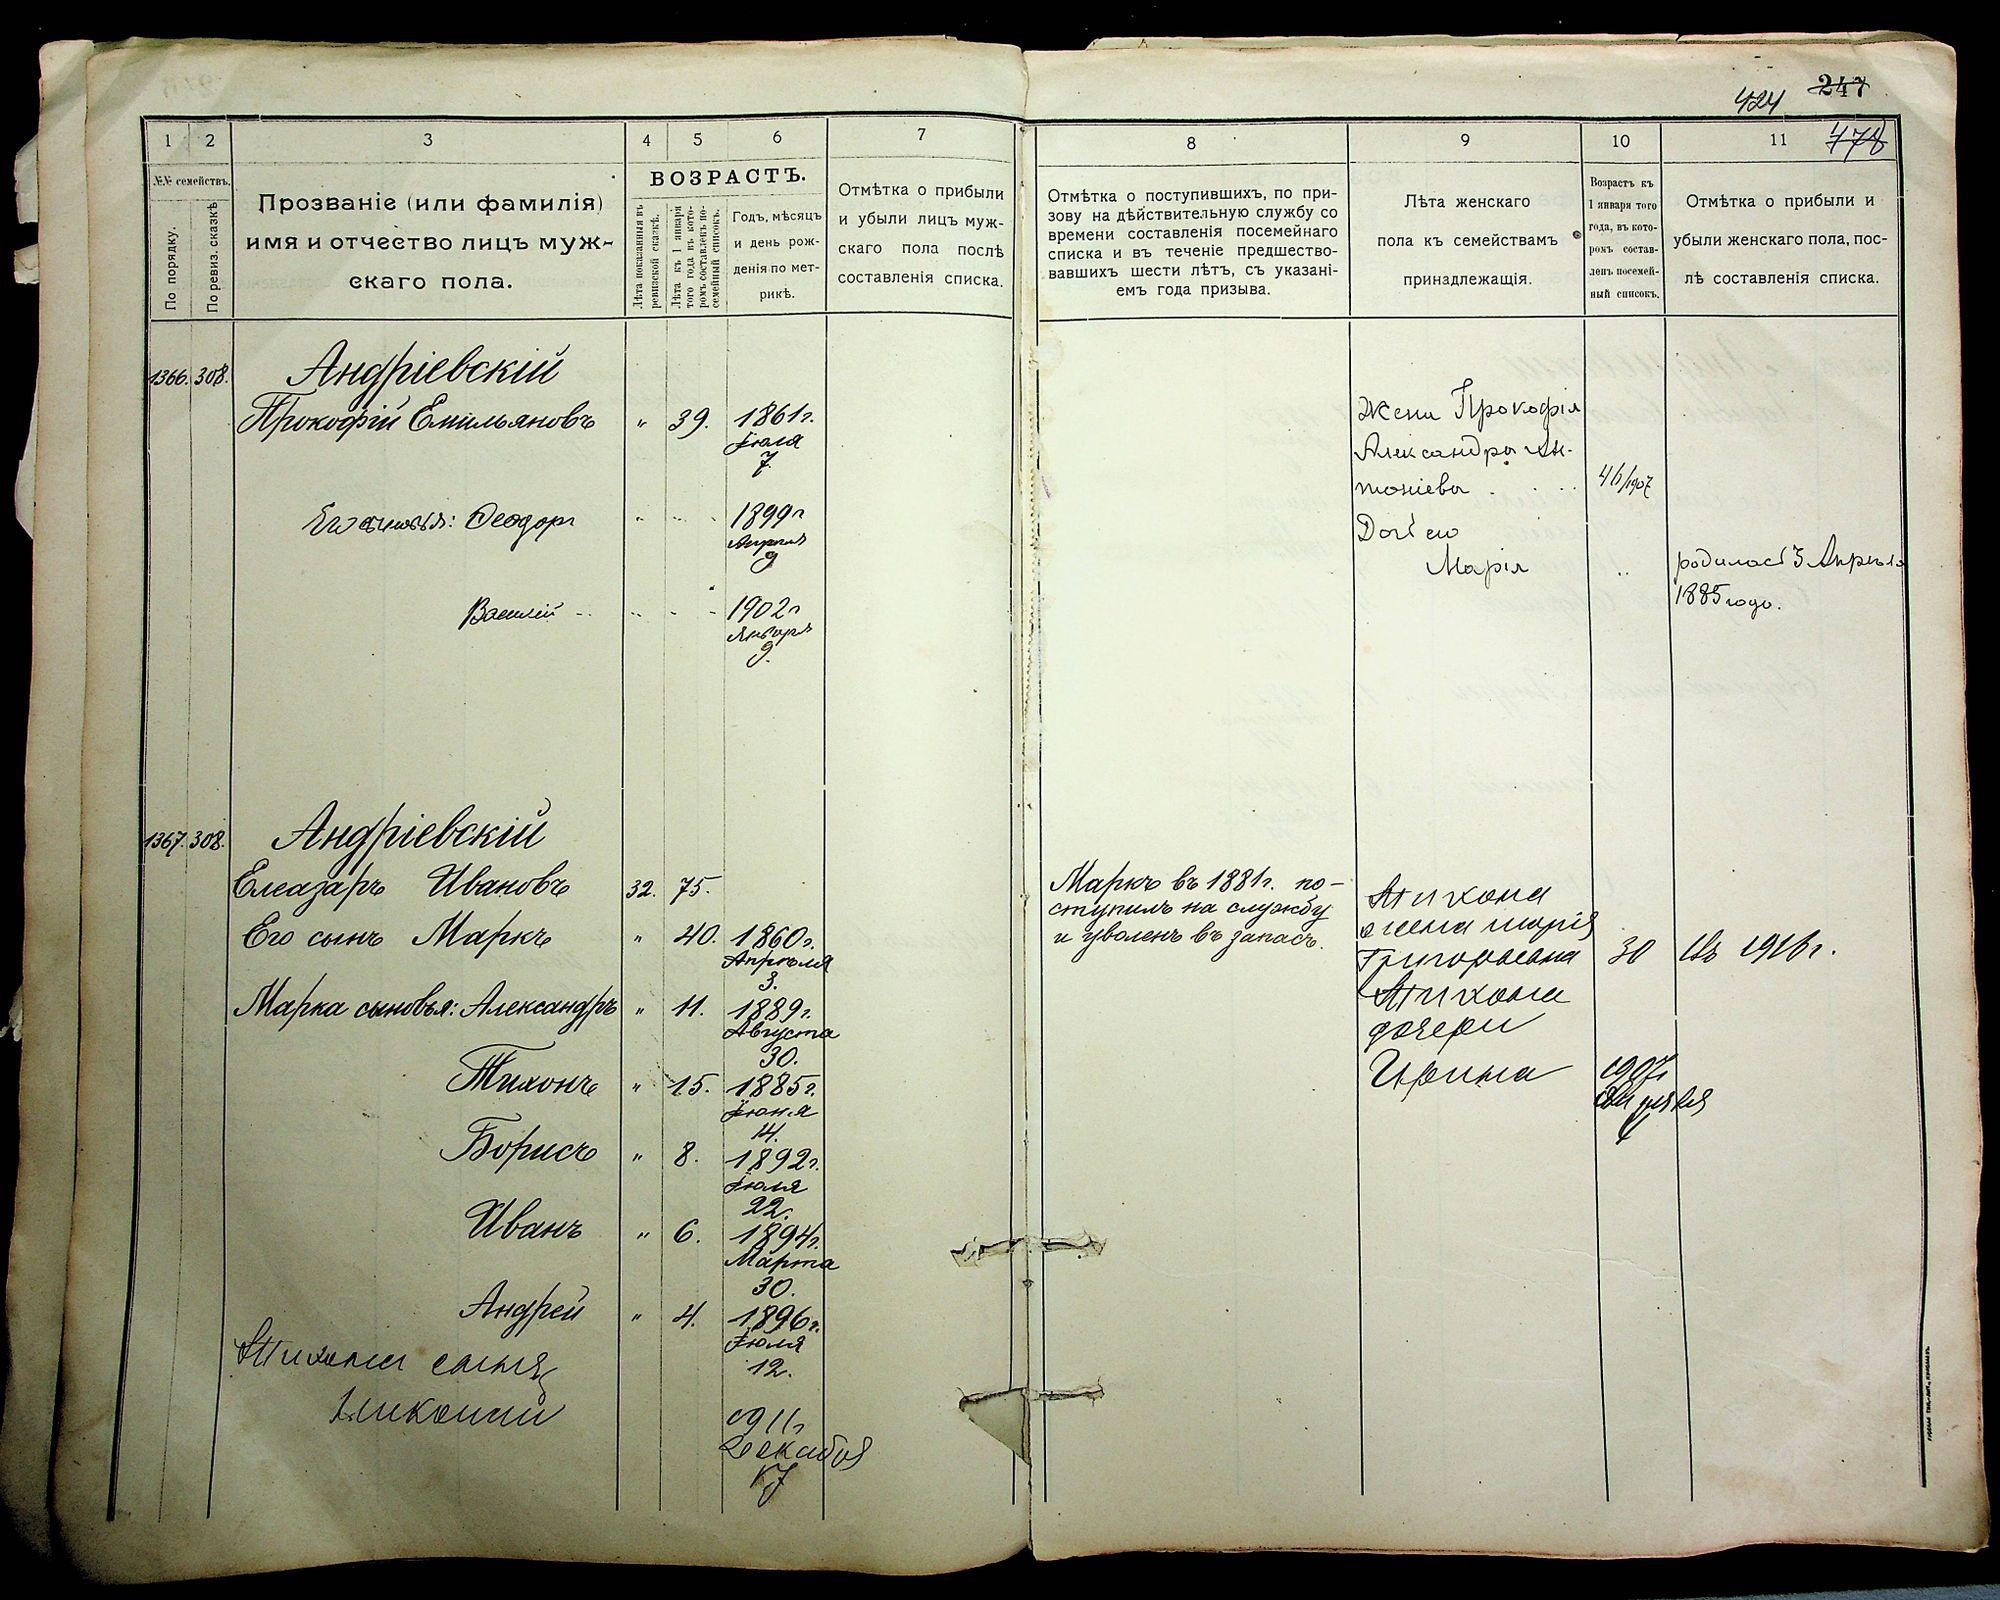 247
424
478
1
2
3
4
5
6
7
8
9
10
11
№№ семействъ.
По порядку.
По ревиз. сказкѣ
Прозваніе (или фамилія)
имя и отчество лицъ муж-
скаго пола.
ВОЗРАСТЪ.
Лѣта показанныя въ
ревизской сказкѣ.
Лѣта къ 1 января
того года въ кото-
ромъ составленъ по-
семейный списокъ.
Годъ, мѣсяцъ
и день рож-
денія по мет-
рикѣ.
Отмѣтка о прибыли
и убыли лицъ муж-
скаго пола послѣ
составленія списка.
Отмѣтка о поступившихъ, по при-
зову на дѣйствительную службу со
времени составленія посемейнаго
списка и въ теченіе предшество-
вавшихъ шести лѣтъ, съ указані-
емъ года призыва.
Лѣта женскаго
пола къ семействамъ
принадлежащія.
Возрастъ къ
1 января того
года, въ кото-
ромъ состав-
ленъ посемей-
ный списокъ.
Отмѣтка о прибыли и
убыли женскаго пола, пос-
лѣ составленія списка.
1366. 308. Андріевскій
Прокофій Емильяновъ " 39. 1861 г.
Іюля
7.
Его сыновья: Феодоръ 1899 г
Апрѣля
9
Василій 1902 г
Января
9.
Жена Прокофія
Александра Ан-
тоніева 46/1907
Дочь его
Марія
родилась 3 Апрѣля
1885 года.
1367. 308. Андріевскій
Елеазаръ Ивановъ 32. 75.
Его сынъ Маркъ " 40. 1860 г.
Апрѣля
3.
Марка сыновья: Александръ " 11. 1889 г.
Августа
30.
Тихонъ " 15. 1885 г.
Іюня
14.
Борисъ " 8. 1892 г.
Іюля
22.
Иванъ " 6. 1894 г.
Марта
30.
Андрей " 4. 1896 г.
Іюля
12.
Тихона сынъ
1911 г
Декабря
17
Маркъ въ 1881 г. по-
ступилъ на службу
и уволенъ въ запасъ.
Тихона
жена Марія
Григорьевна 30 Въ 1916 г.
Тихона
дочери
Ирина 1907 г